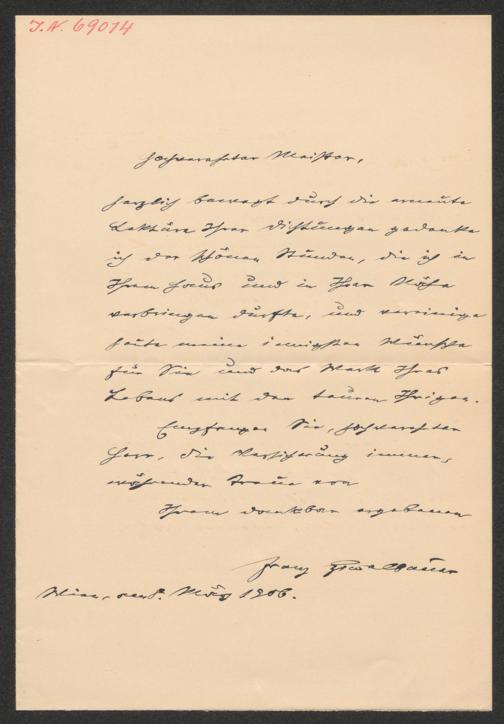 I.N. 69014
Hochverehrter Meister,
herzlich bewegt durch die erneute
Lektüre Ihrer Dichtungen gedenke
ich der schönen Stunden, die ich in
Ihrem Haus und in Ihrer Nähe
verbringen durfte, und vereinige
heute meine innigsten Wünsche
für Sie und das Werk Ihres
Lebens mit den teuren Ihrigen.
Empfangen Sie, hochverehrter
Herr, die Versicherung immer-
währender Treue von
Ihrem dankbar ergebenen
Franz
Wien, den 8. März 1906.